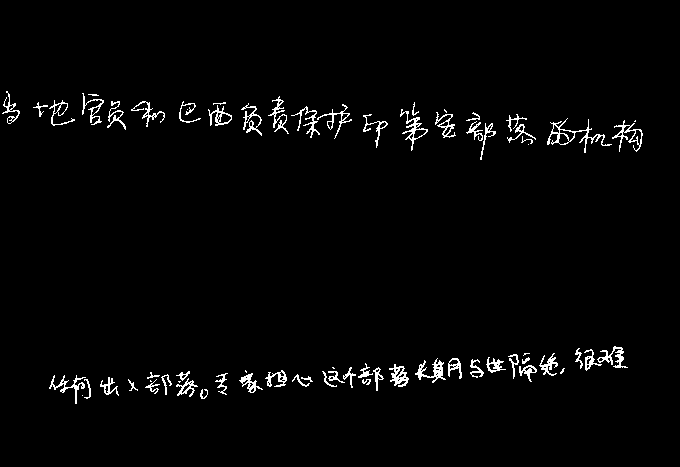 当地官员和巴西负责保护印第安部落的机构
任何出入部落。专家担心这个部落长期与世隔绝，很难